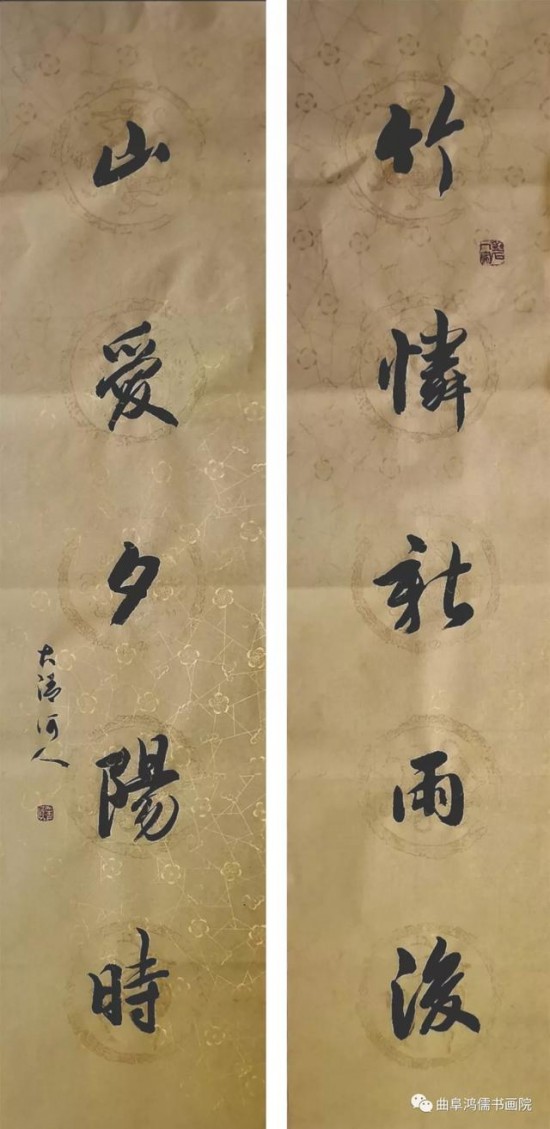 竹憐新雨後
山愛夕陽時
大清河人
曲阜鸿儒书画院